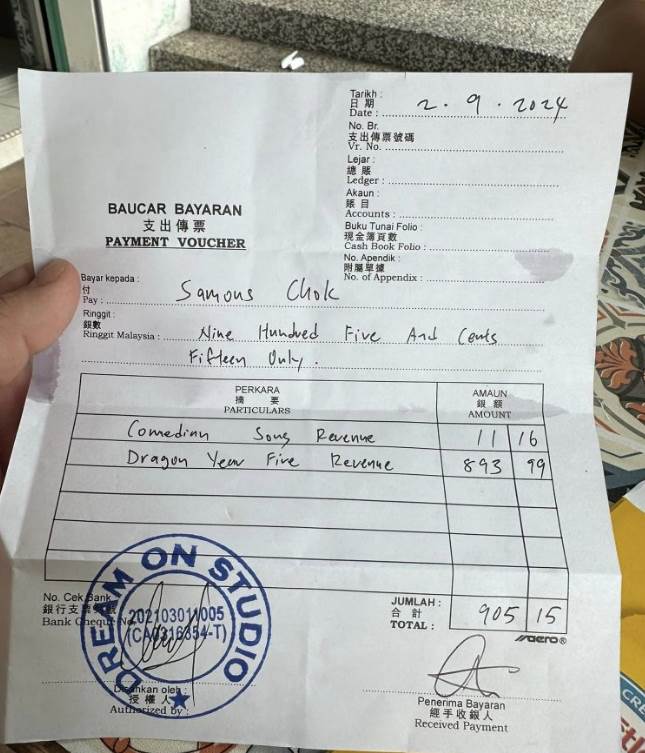 Tarikh :
日 期
Date : 2 . 9 . 2024
No. Br.
支出傳票號碼
Vr. No.
Lejar :
總 賬
Ledger :
Akaun :
賬 目
Accounts :
Buku Tunai Folio :
現金簿頁數
Cash Book Folio :
No. Apendik :
附屬單據
No. of Appendix :
BAUCAR BAYARAN
支出傳票
PAYMENT VOUCHER
Bayar kepada :
付
Pay : Samous Chok
Ringgit :
銀數
Ringgit Malaysia : Nine Hundred Five And Cents
Fifteen Only.
PERKARA AMAUN
摘 要 銀 額
PARTICULARS AMOUNT
Comedian Song Revenue 11 16
Dragon Year Five Revenue 893 99
DREAM ON STUDIO
202103011005
(CA0316354-T)
No. Cek Bank
銀行支票
Bank Cheque No.
JUMLAH :
合 計
TOTAL : 905 15
aero®
Disahkan oleh :
授 權 人
Authorized by :
Penerima Bayaran
經手收銀人
Received Payment
CRE